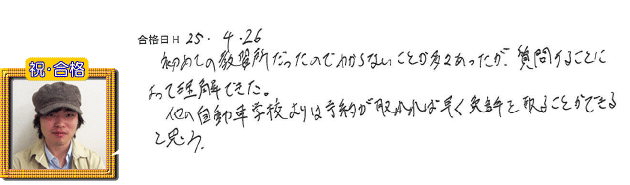 合格日 H 25. 4. 26
祝・合格
初めての教習所だったのでわからないことが多々あったが、質問することに
よって理解できた。
他の自動車学校よりは予約が取れれば早く免許を取ることができる
と思う。